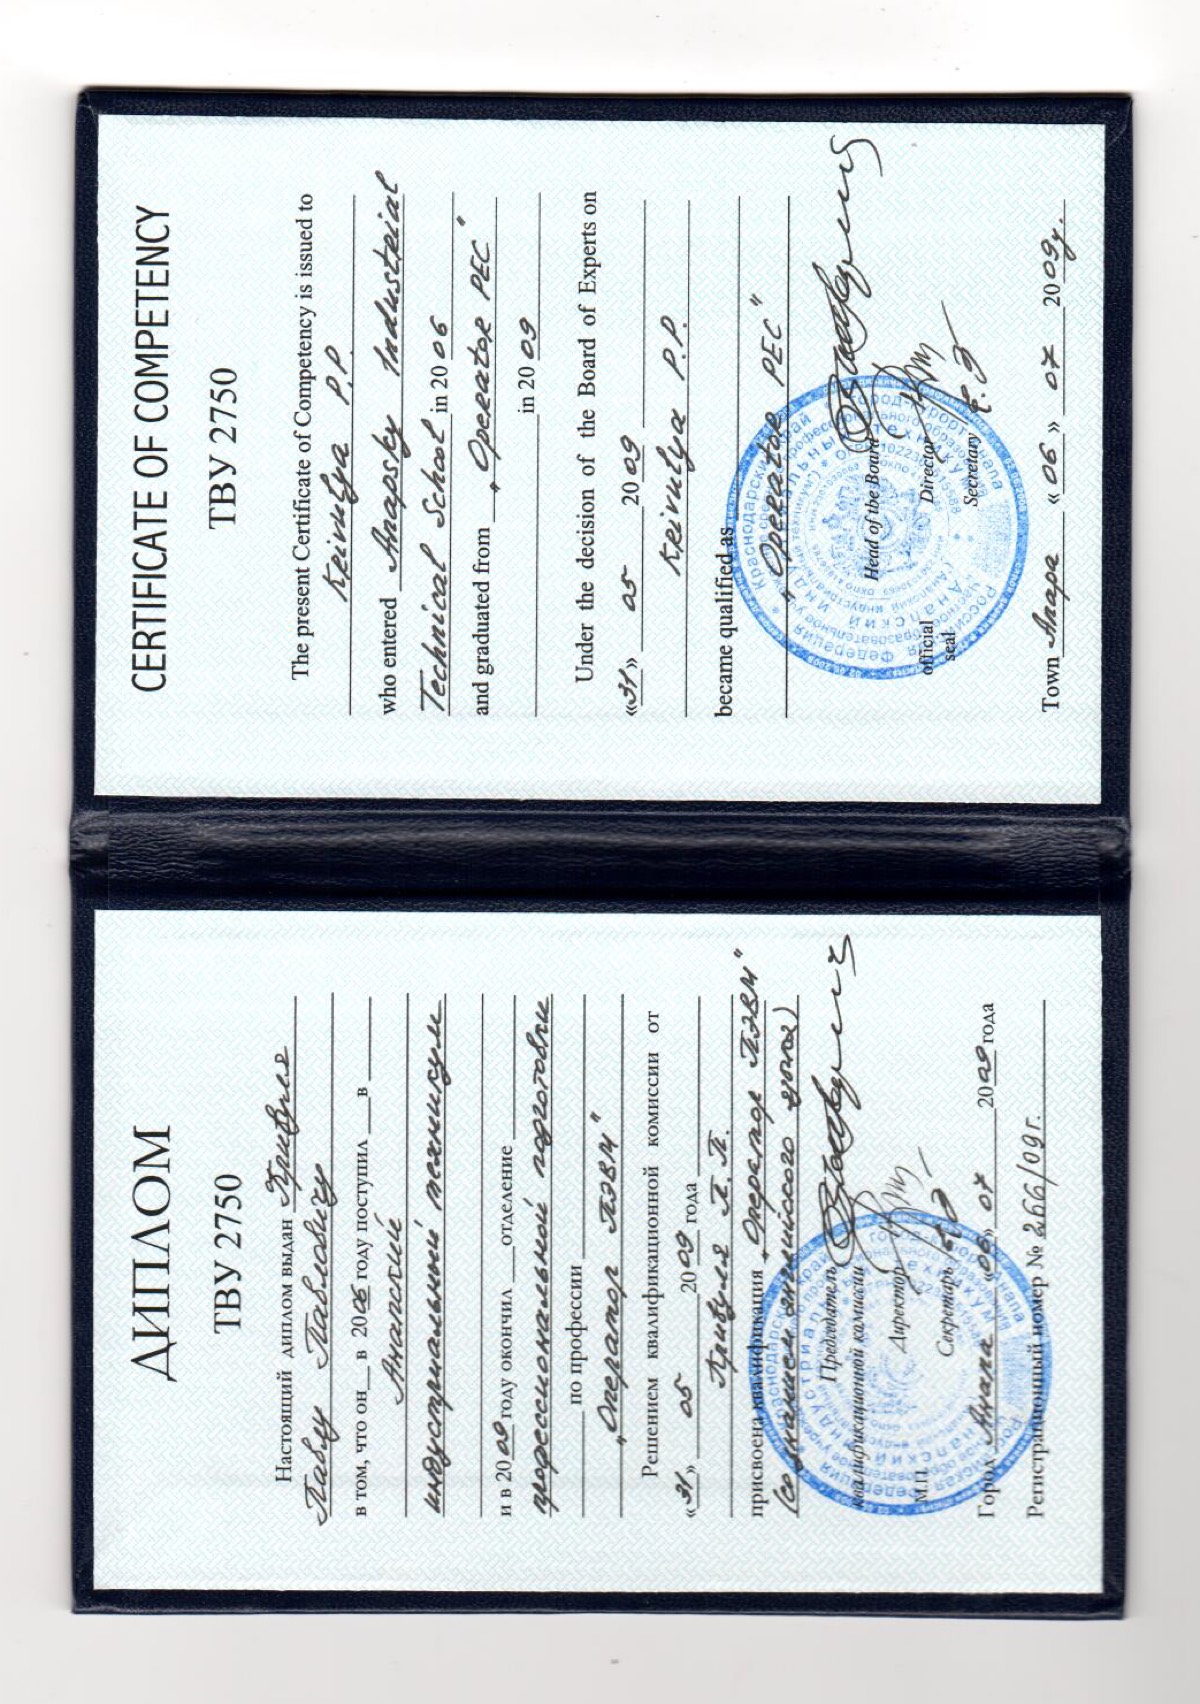 ДИПЛОМ
ТВУ 2750
Настоящий диплом выдан Кривуля
Павлу Павловичу
в том, что он в 2006 году поступил в
Анапский
индустриальный техникум
и в 2009 году окончил отделение
профессиональной подготовки
по профессии
„Оператор ПЭВМ"
Решением квалификационной комиссии от
«31» 05 2009 года
Кривуля П. П.
присвоена квалификация „Оператор ПЭВМ"
(со знанием английского языка)
Председатель
квалификационной комиссии
Директор
Секретарь
М.П.
Город Анапа «06» 07 2009 года
Регистрационный номер № 266/09г.
CERTIFICATE OF COMPETENCY
ТВУ 2750
The present Certificate of Competency is issued to
Krivulya P.P.
who entered Anapsky Industrial
Technical School in 2006
and graduated from „Operator PEC"
in 2009
Under the decision of the Board of Experts on
«31» 05 2009
Krivulya P.P.
became qualified as
„Operator PEC"
Head of the Board
official Director
seal Secretary
Town Anapa «06» 07 2009г.